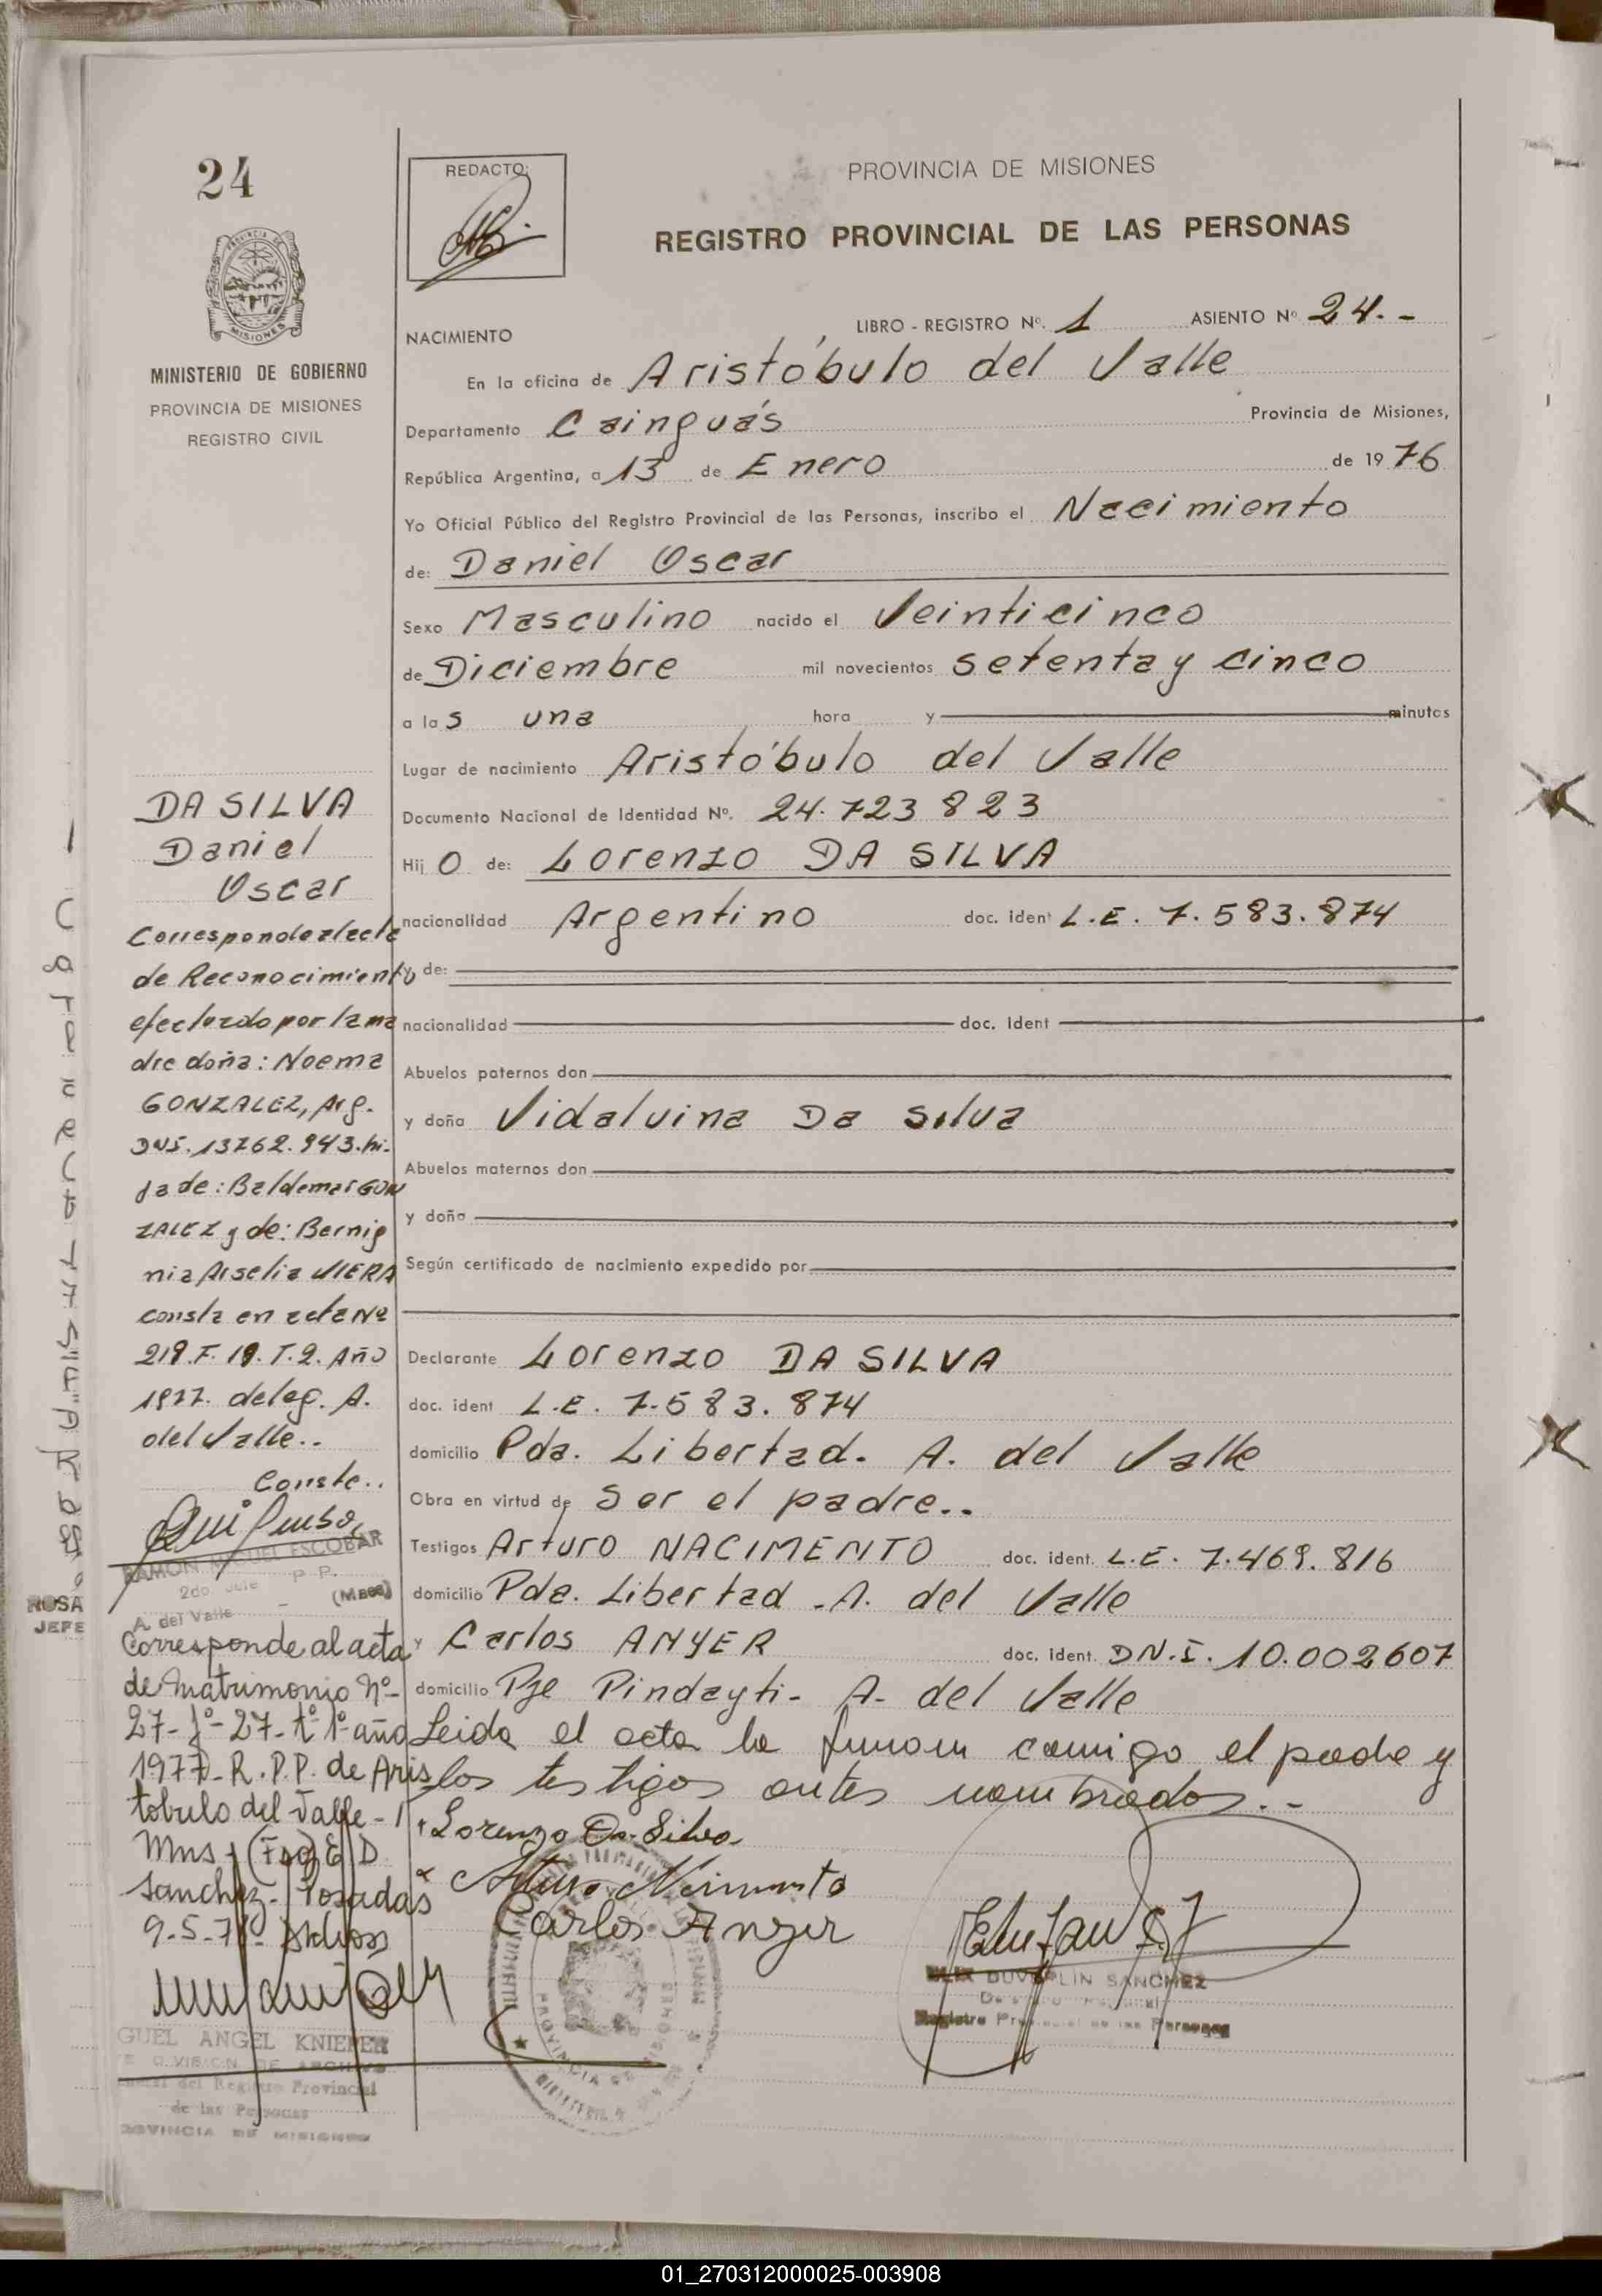 24
REDACTO:
PROVINCIA DE MISIONES
REGISTRO PROVINCIAL DE LAS PERSONAS
MINISTERIO DE GOBIERNO
PROVINCIA DE MISIONES
REGISTRO CIVIL
LIBRO - REGISTRO Nº. 1 ASIENTO Nº 24.-
NACIMIENTO
En la oficina de Aristóbulo del Valle
Departamento Cainguás Provincia de Misiones,
República Argentina, a 13 de Enero de 1976
Yo Oficial Público del Registro Provincial de las Personas, inscribo el Nacimiento
de: Daniel Oscar
Sexo Masculino nacido el Veinticinco
de Diciembre mil novecientos setenta y cinco
a las una hora y minutos
Lugar de nacimiento Aristóbulo del Valle
Documento Nacional de Identidad Nº. 24.723823
Hijo de: Lorenzo DA SILVA
nacionalidad Argentino doc. ident L.E. 7.583.874
y de:
nacionalidad doc. ident
Abuelos paternos don
y doña Vidalvina Da Silva
Abuelos maternos don
y doña
Según certificado de nacimiento expedido por
Declarante Lorenzo DA SILVA
doc. ident L.E. 7.583.874
domicilio Pda. Libertad. A. del Valle
Obra en virtud de Ser el padre..
Testigos Arturo NACIMENTO doc. ident. L.E. 7.469.816
domicilio Pda. Libertad -A. del Valle
y Carlos ANYER doc. ident. DN.I. 10.002607
domicilio Pje Pindayti- A- del Valle
Leida el acta la firman comigo el padre y
los testigos antes nombrados.-
Lorenzo Da Silva
Carlos Anyer
DUVERLIN SANCHEZ
Registro Provincial de las Personas
DA SILVA
Daniel
Oscar
Corresponde al acta
de Reconocimiento
efectuado por la ma
dre doña: Noema
GONZALEZ, Arg.
DNI. 13762.943. hi-
ja de: Baldemar GON
ZALEZ y de: Bernig
nia Arselia VIERA
consta en acta Nº
219.F. 19. T.2. Año
1977. deleg. A.
del Valle..
Conste..
RAMON MIGUEL ESCOBAR
2do. Jefe
A. del Valle
(Mnes)
ROSA
JEFE
Corresponde al acta
de Matrimonio Nº-
27- fº- 27- tº 1º- año
1977- R.P.P. de Aris
tobulo del Valle-
Mns- (Fdo) E D
Sanchez- Posadas
GUEL ANGEL KNIEPER
DIVISION DE ARCHIVO
del Registro Provincial
de las Personas
PROVINCIA DE MISIONES
01_270312000025-003908